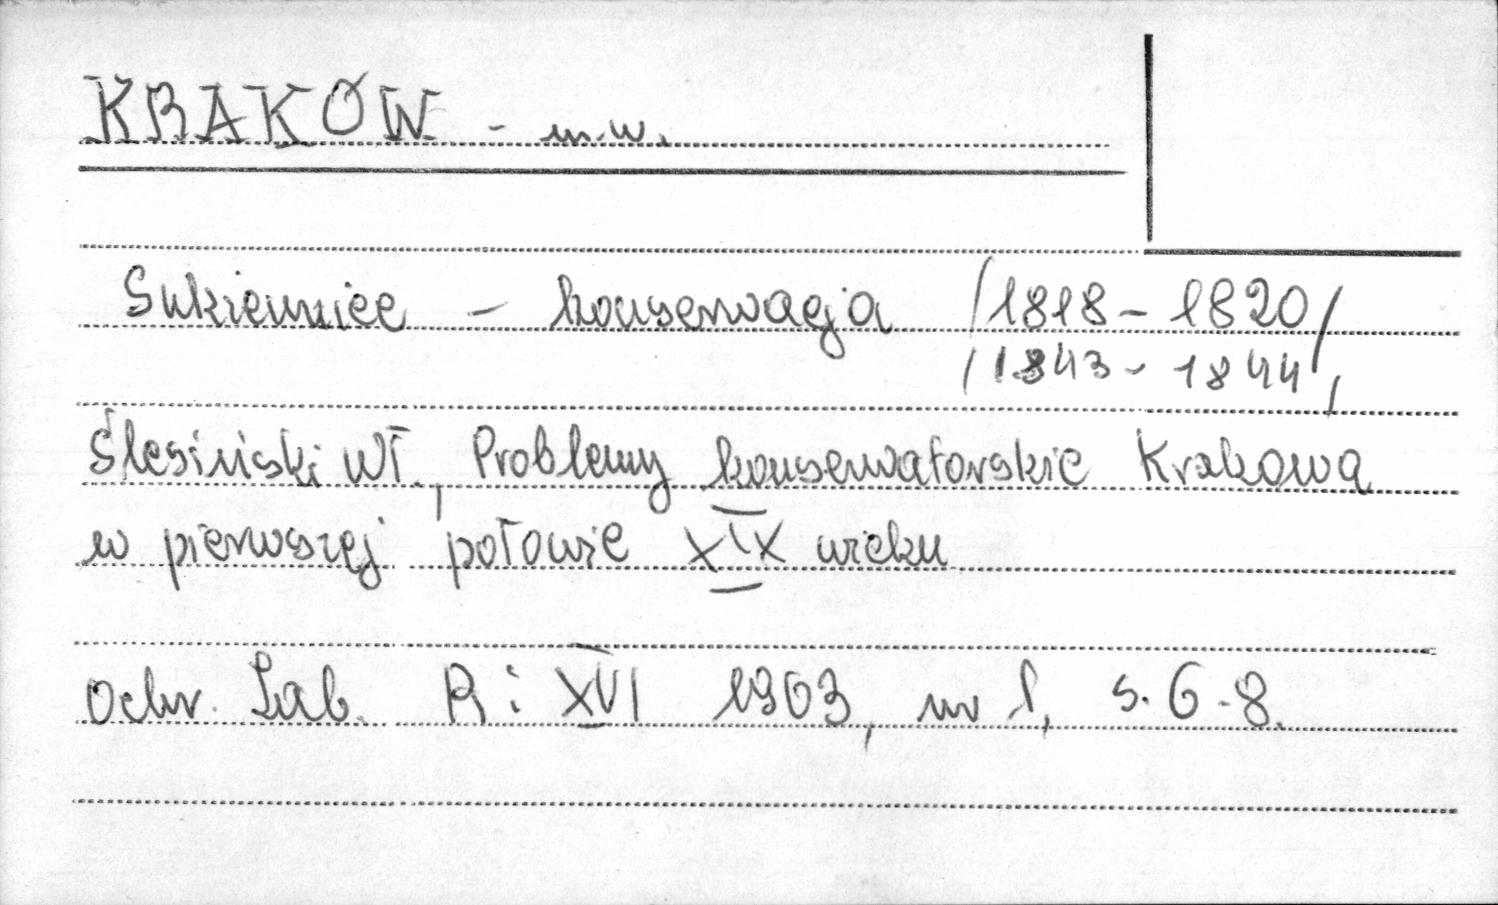 KRAKÓW - m.w.
Sukiennice - konserwacja /1818-1820/
/1843-1844/
Ślesiński Wł., Problemy konserwatorskie Krakowa
w pierwszej połowie XIX wieku
Ochr. Zab. R: XVI 1963, nr 1, s. 6-8.